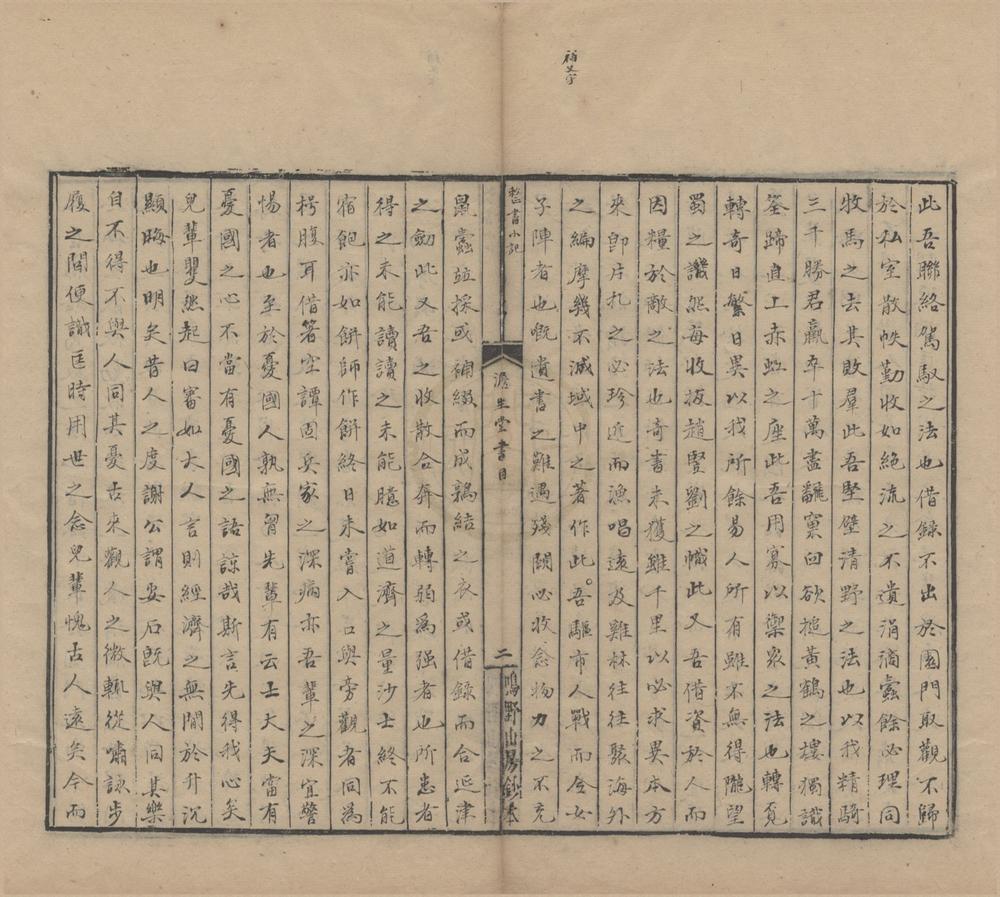 補五字
此吾聯絡駕馭之法也借錄不出於園門取觀不歸
於私室散帙勤收如絶流之不遺涓滴蠹餘必理同
牧馬之去其敗羣此吾堅壁清野之法也以我精騎
三千勝君羸卒十萬盡翻窠臼欲搥黃鶴之樓獨識
筌蹄直上赤虹之座此吾用寡以禦衆之法也轉覓
轉奇日繁日異以我所餘易人所有雖不無得隴望
蜀之譏然每收拔趙豎劉之幟此又吾借資於人而
因糧於敵之法也奇書未獲雖千里以必求異本方
來卽片札之必珍近而漁唱遠及雞林往往聚海外
之編摩幾不減域中之著作此吾驅市人戰而令女
子陣者也慨遺書之難遇殘闕必收念物力之不充
整書小記
澹生堂書目
二
鳴野山房鈔本
鼠蠹竝採或補綴而成鶉結之衣或借錄而合延津
之劒此又吾之收散合奔而轉弱為强者也所患者
得之未能讀讀之未能臆如道濟之量沙士終不能
宿飽亦如餅師作餅終日未嘗入口與旁觀者同為
枵腹耳借箸空譚固兵家之深病亦吾輩之深宜警
惕者也至於憂國人孰無胷先輩有云士大夫當有
憂國之心不當有憂國之語諒哉斯言先得我心矣
兒輩矍然起曰審如大人言則經濟之無間於升沉
顯晦也明矣昔人之度謝公謂安石旣與人同其樂
自不得不與人同其憂古來觀人之微輒從嘯詠步
履之間便識匡時用世之念兒輩愧古人遠矣今而